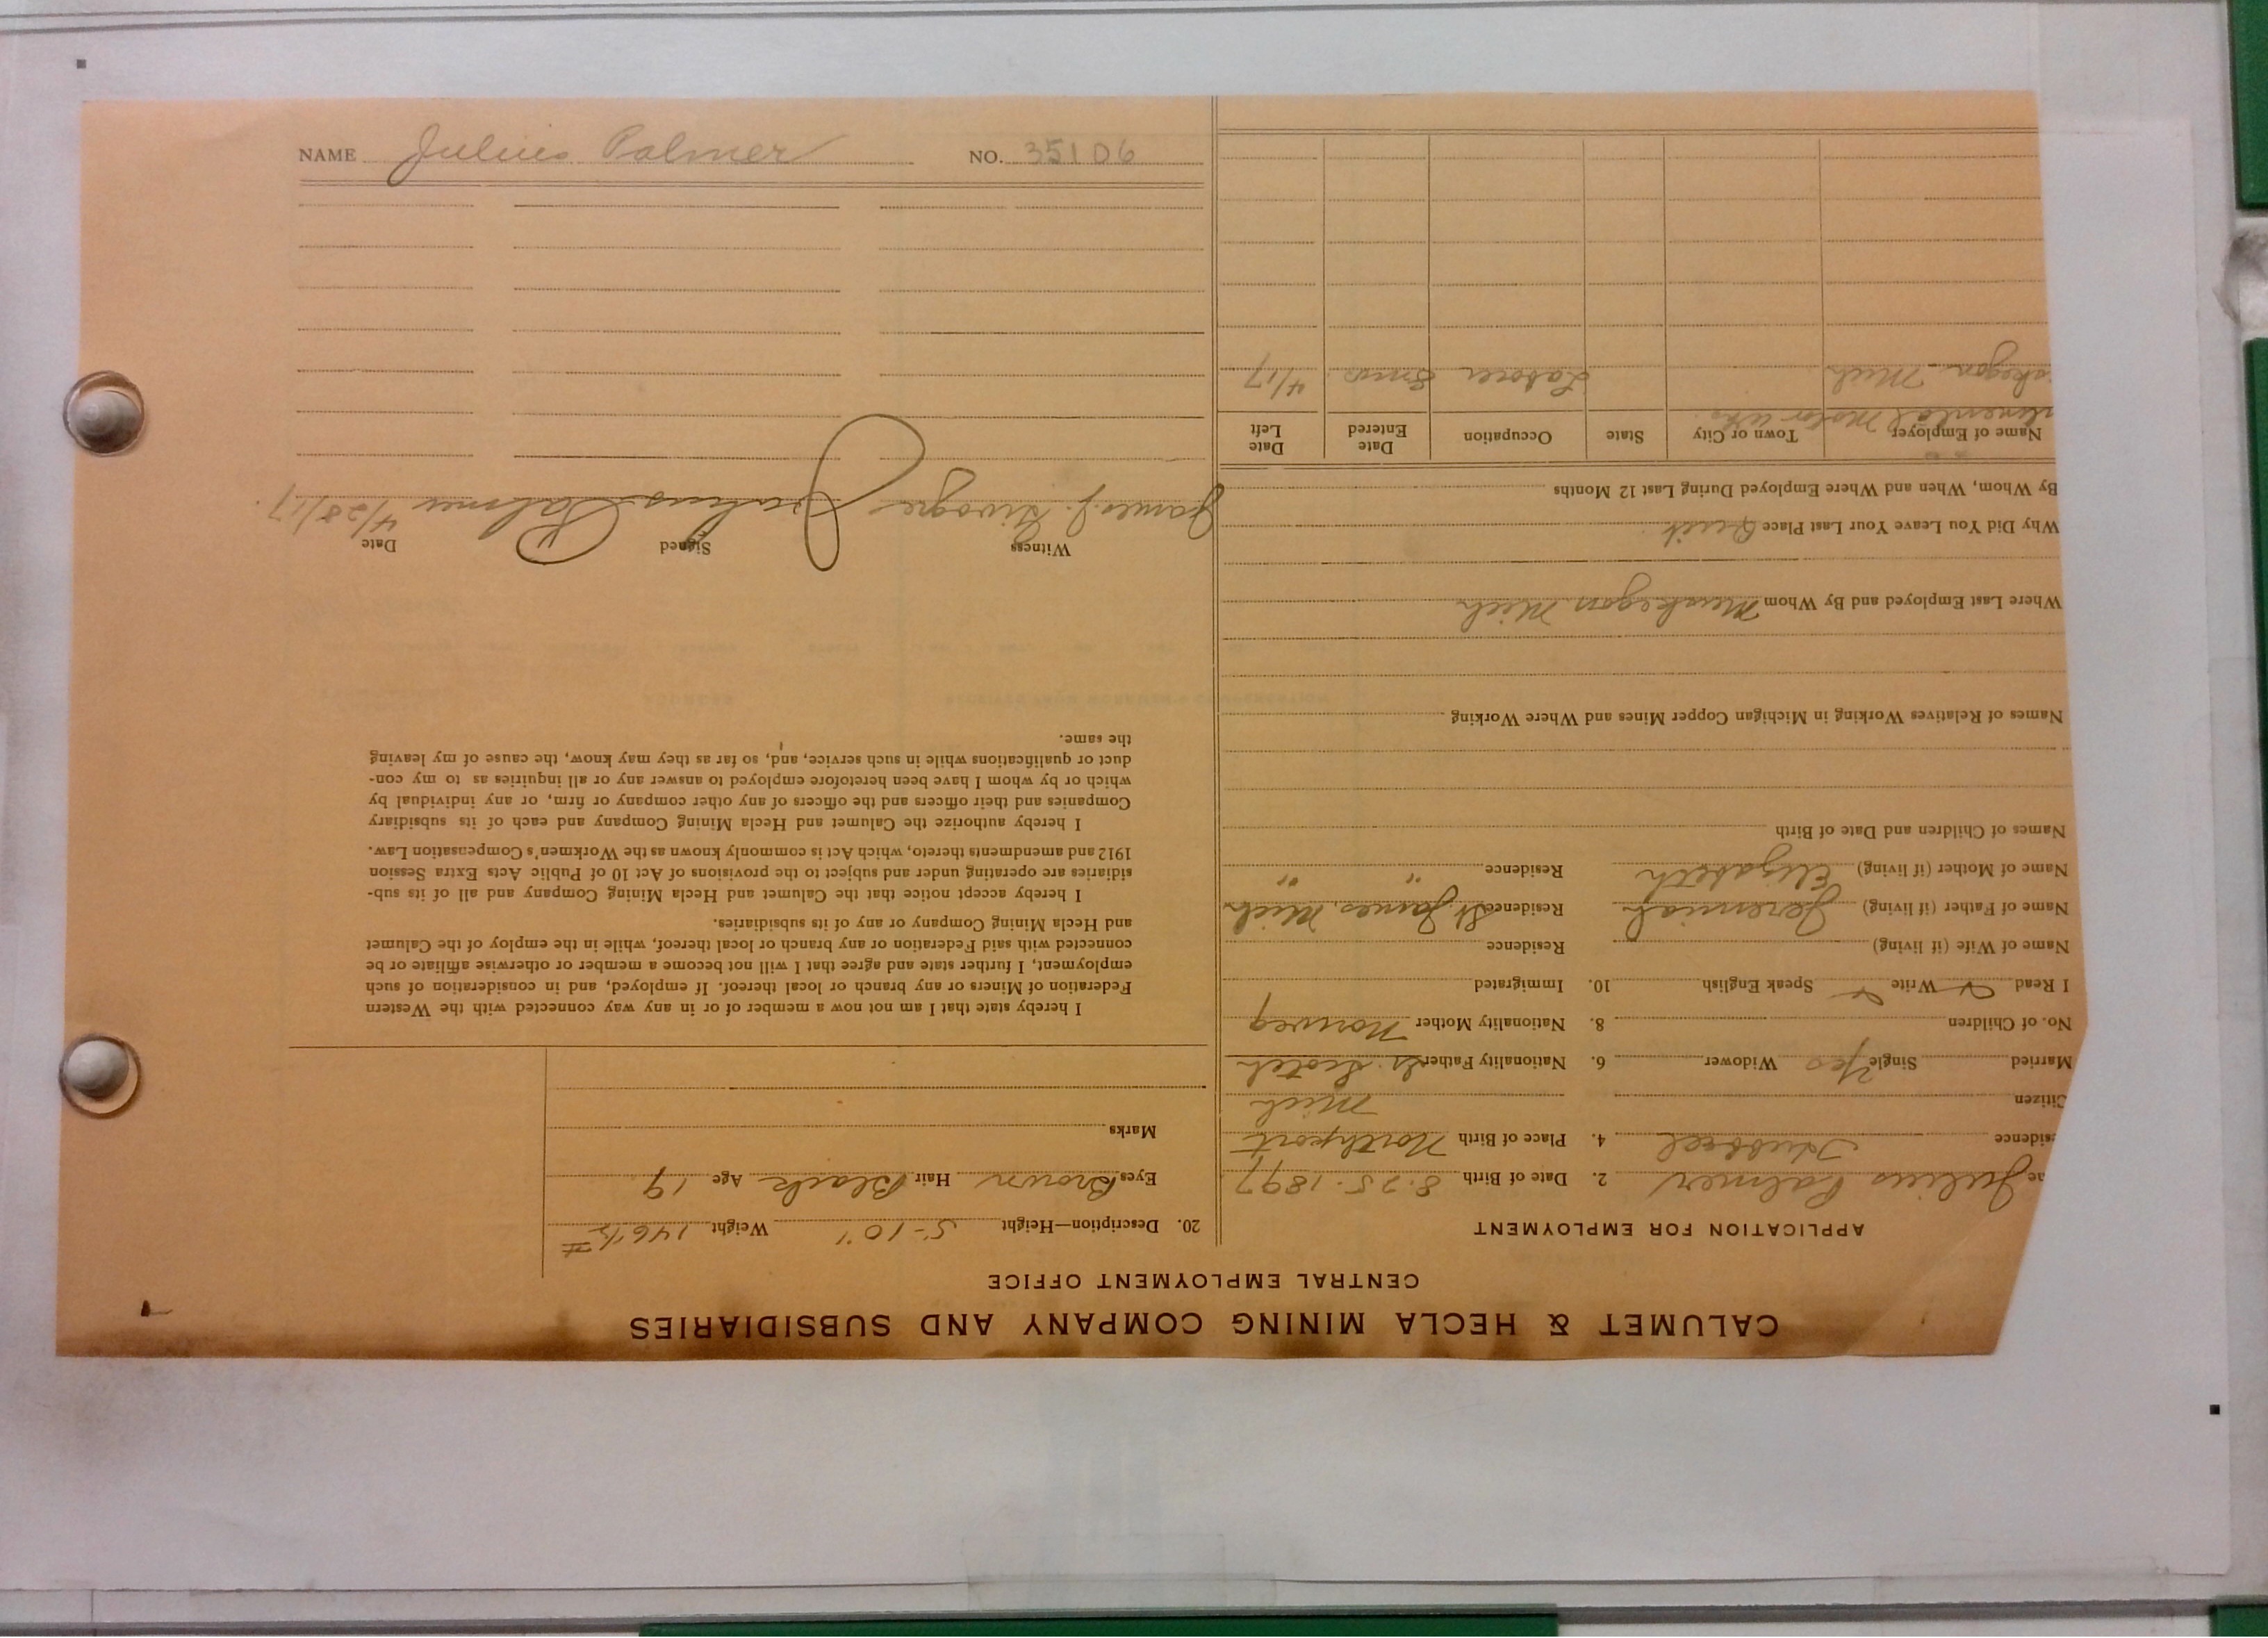 CALUMET & HECLA MINING COMPANY AND SUBSIDIARIES
CENTRAL EMPLOYMENT OFFICE
APPLICATION FOR EMPLOYMENT
Julius Palmer 2. Date of Birth 8.25.1897
sidence Hubbell 4. Place of Birth Northport
Citizen Mich
Married Single Yes Widower 6. Nationality Father Scotch
No. of Children 8. Nationality Mother Norweg
I Read Write Speak English 10. Immigrated
Name of Wife (if living) Residence
Name of Father (if living) Jeremiah Residence St. James, Mich
Name of Mother (if living) Elizabeth Residence " "
Names of Children and Date of Birth
Names of Relatives Working in Michigan Copper Mines and Where Working
Where Last Employed and By Whom Muskegon Mich
Why Did You Leave Your Last Place Quit
By Whom, When and Where Employed During Last 12 Months
Name of Employer Town or City State Occupation Date Entered Date Left
Motor Wks.
skegon Mich Laborer 8 mos. 4/17
20. Description—Height 5-10" Weight 146 1/2 #
Eyes Brown Hair Black Age 19
Marks
I hereby state that I am not now a member of or in any way connected with the Western
Federation of Miners or any branch or local thereof. If employed, and in consideration of such
employment, I further state and agree that I will not become a member or otherwise affiliate or be
connected with said Federation or any branch or local thereof, while in the employ of the Calumet
and Hecla Mining Company or any of its subsidiaries.
I hereby accept notice that the Calumet and Hecla Mining Company and all of its sub-
sidiaries are operating under and subject to the provisions of Act 10 of Public Acts Extra Session
1912 and amendments thereto, which Act is commonly known as the Workmen's Compensation Law.
I hereby authorize the Calumet and Hecla Mining Company and each of its subsidiary
Companies and their officers and the officers of any other company or firm, or any individual by
which or by whom I have been heretofore employed to answer any or all inquiries as to my con-
duct or qualifications while in such service, and, so far as they may know, the cause of my leaving
the same.
Witness Signed Date
James J. Julius Palmer 4/28/17.
NAME Julius Palmer NO. 35106